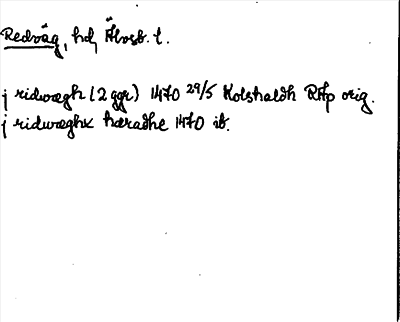 Redväg, hd, Älvsb. l.
j ridwægh (2 ggr) 1470 29/5 Kolstadh RAp orig.
j ridwæghx hæradhe 1470 ib.